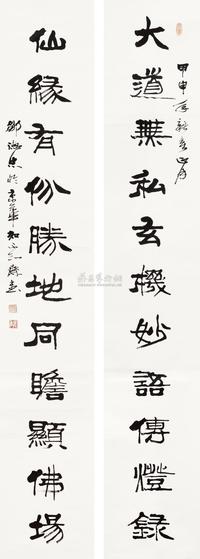 大道無私玄機妙語傳燈錄
甲申年新春
仙緣有份勝地同瞻顯佛場